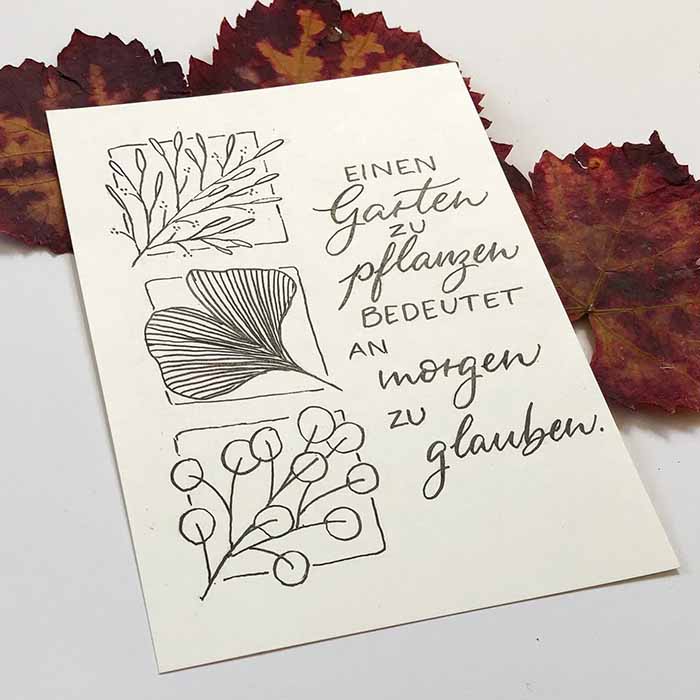 EINEN
Garten
ZU
pflanzen
BEDEUTET
AN
morgen
ZU
glauben.